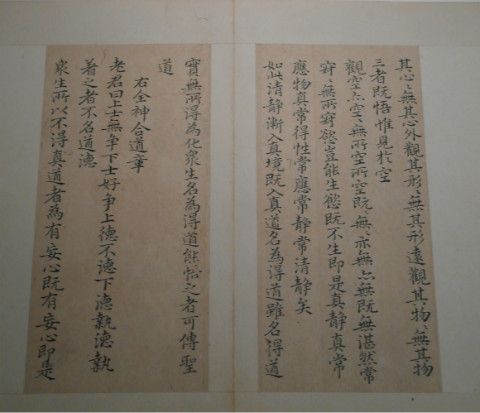 其心〻無其心外觀其形〻無其形遠觀其物〻無其物
三者既悟惟見於空
觀空亦空〻無所空所空既無〻亦無亦無既無湛然常
寂〻無所寂慾豈能生慾既不生即是真靜真常
應物真常得性常應常靜常清靜矣
如此清靜漸入真境既入真道名為得道雖名得道
實無所得為化衆生名為得道能悟之者可傳聖
道
右全神合道章
老君曰上士無爭下士好爭上德不德下德執德執
着之者不名道德
衆生所以不得真道者為有妄心既有妄心即是